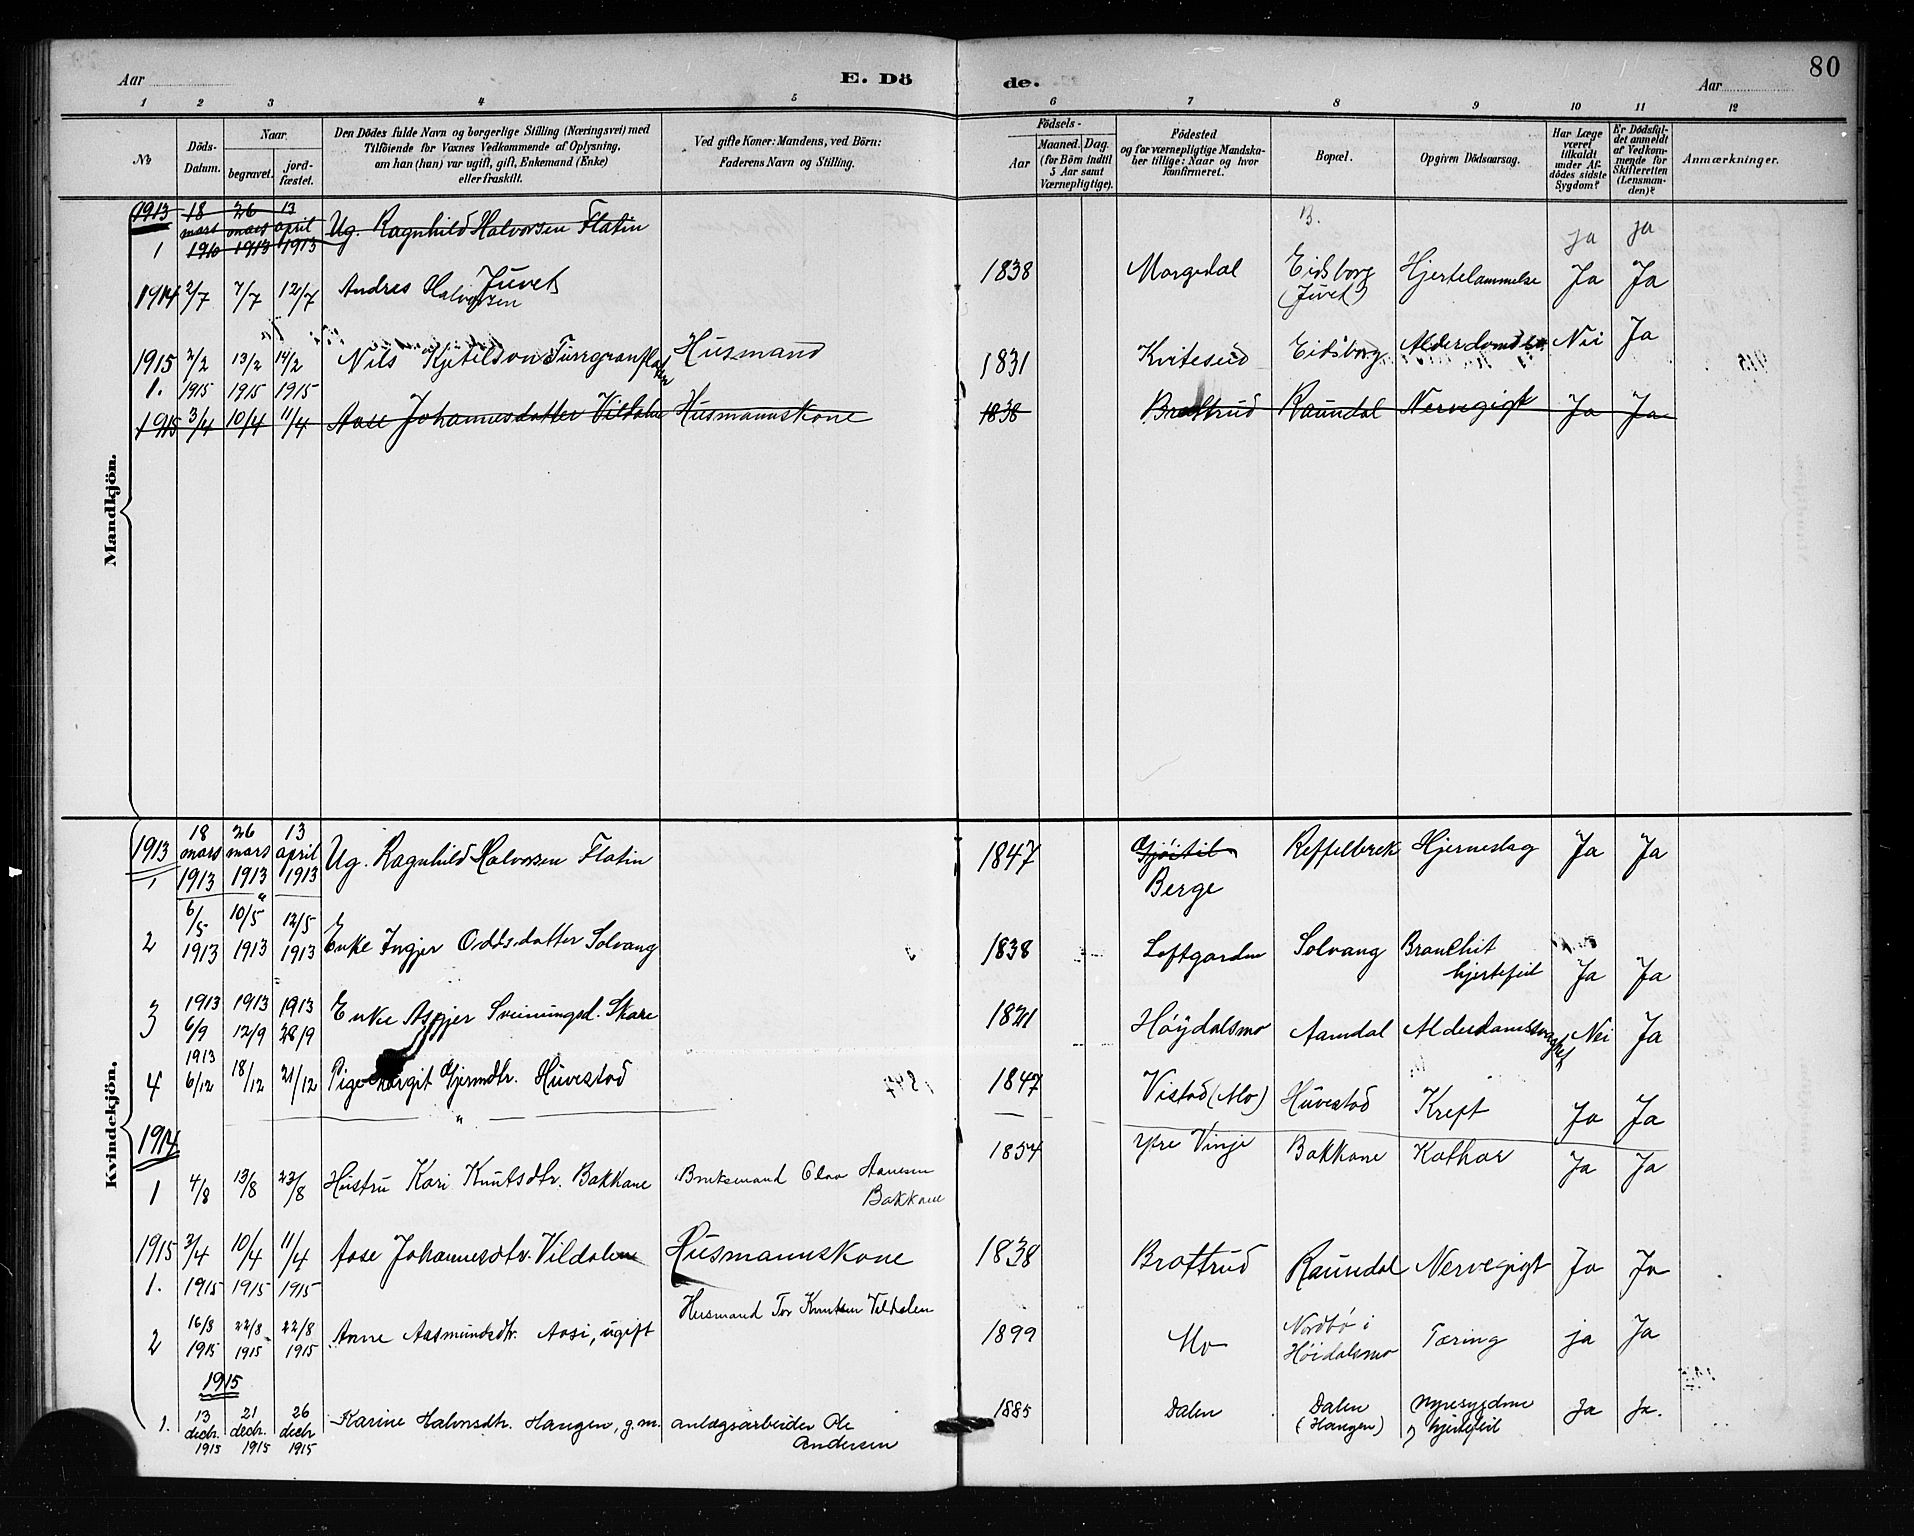 80
Aar E. Dö de. Aar
1 2 3 4 5 6 7 8 9 10 11 12
No
Döds-Datum.
Naar.
begravet.
jord-fæstet.
Den Dödes fulde Navn og borgerlige Stilling (Næringsvei) med
Tilföiende for Voxnes Vedkommende af Oplysning,
om han (hun) var ugift, gift, Enkemand (Enke)
eller fraskilt.
Ved gifte Koner: Mandens, ved Börn:
Faderens Navn og Stilling.
Födsels-
Aar
Maaned. Dag.
(for Börn indtil
5 Aar samt
Værnepligtige).
Födested
og for værnepligtige Mandska-
ber tillige: Naar og hvor
konfirmeret.
Bopæl.
Opgiven Dödsaarsag.
Har Læge
været
tilkaldt
under Af-
dödes sidste
Sygdom?
Er Dödsfal-
det anmeldt
af Vedkom-
mende for
Skifteretten
(Lensman-
den)?
Anmærkninger.
Mandkjön.
1913 18 mars 1910 26 mars 1913 13 april 1913 Ug. Ragnhild Halvorsen Flatin ja ja
1
1914 2/7 7/7 12/7 Andres Halvorsen Juvet 1838 Morgedal Eidsborg (Juvet) Hjertelammelse Ja Ja
1915 2/2 13/2 14/2 Nils Kjetilson Husmand 1831 Kviteseid Eidsborg Nei Ja
1. 1915 1915 1915
1915 3/4 10/4 11/4 Aase Johannesdatter Vildalen Husmannskone 1838 Brottrud Raundal Nervegigt Ja Ja
Kvindekjön.
1913 18 mars 1913 26 mars 1913 13 april 1913 Ug. Ragnhild Halvorsen Flatin 1847 Berge Hjerneslag Ja Ja
1
2 6/5 1913 10/5 1913 12/5 1913 Enke Ingjer Oddsdatter Solvang 1838 Loftgarden Solvang hjertefeil Ja Ja
3 1913 6/9 1913 12/9 1913 28/9 Enke Asgjer Sveinungsd. Skare 1821 Høydalsmo Aamdal Nei Ja
4 1913 6/12 18/12 21/12 Pige Margit Gjermdtr. Huvestad 1847 Vistad (Mo) Huvestad Kreft Ja Ja
1914
1 4/8 13/8 23/8 Hustru Kari Knutsdtr. Bakkane Bruksmand Olav Aanesen Bakkane 1854 Ytre Vinje Bakkane Kathar Ja Ja
1915 3/4 10/4 11/4 Aase Johannesdtr. Vildalen Husmannskone 1838 Brottrud Raundal Nervegigt Ja Ja
1. 1915 1915 1915
Husmand Tor Knutsen Vildalen
2 16/8 1915 22/8 1915 22/8 1915 Anne Aasmundsdtr. Aasi, ugift 1899 Mo Nordbø i Høidalsmo Tæring ja Ja
1915
1. 13 decbr. 1915 21 decbr. 1915 26 decbr 1915 Karine Halvorsdtr. Haugen, g.m. anlægsarbeider Ole Andersen 1885 Dalen Dalen (Haugen) nyresygdom hjertefeil Ja Ja.